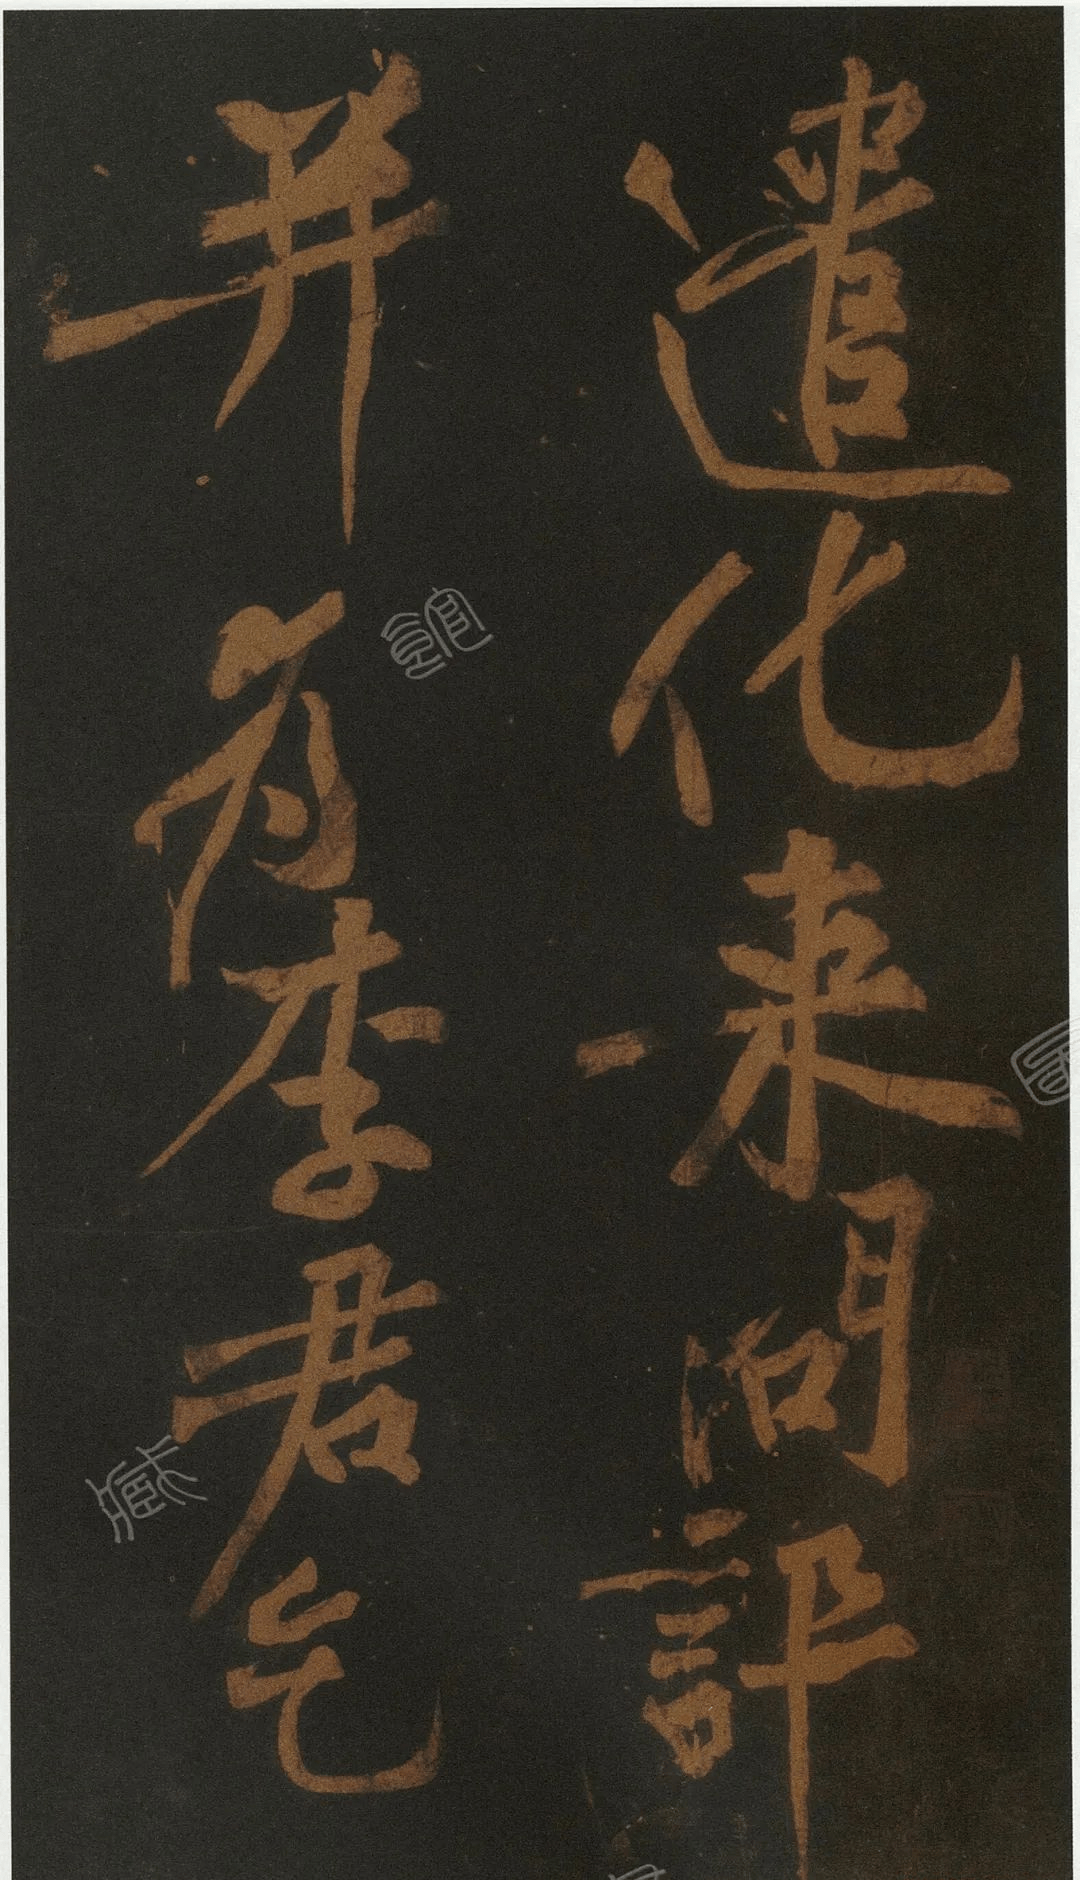 遣化來問訊
并為李君乞